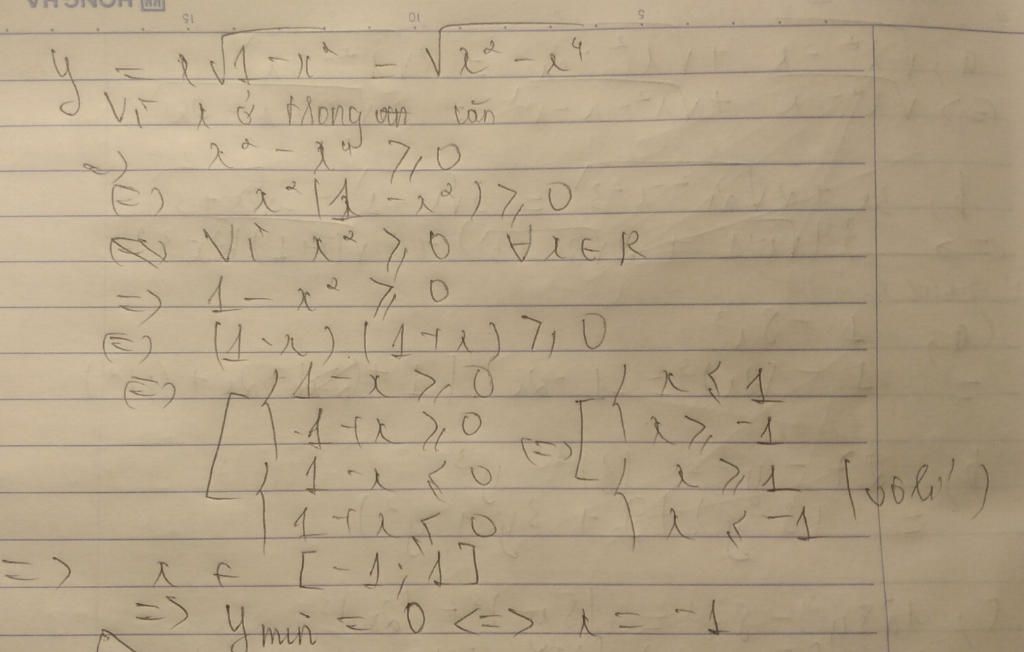 15 10 5
y = x√(1-x²) = √(x²-x⁴)
Vì x ở trong căn
=> x² - x⁴ ≥ 0
<=> x²(1 - x²) ≥ 0
Vì x² ≥ 0 ∀x ∈ R
=> 1 - x² ≥ 0
<=> (1-x).(1+x) ≥ 0
<=> [ { 1-x ≥ 0 { x ≤ 1
1+x ≥ 0 <=> [ x ≥ -1
{ 1-x ≤ 0 { x ≥ 1 (vô lí)
1+x ≤ 0 x ≤ -1
=> x ∈ [-1; 1]
=> y min = 0 <=> x = -1